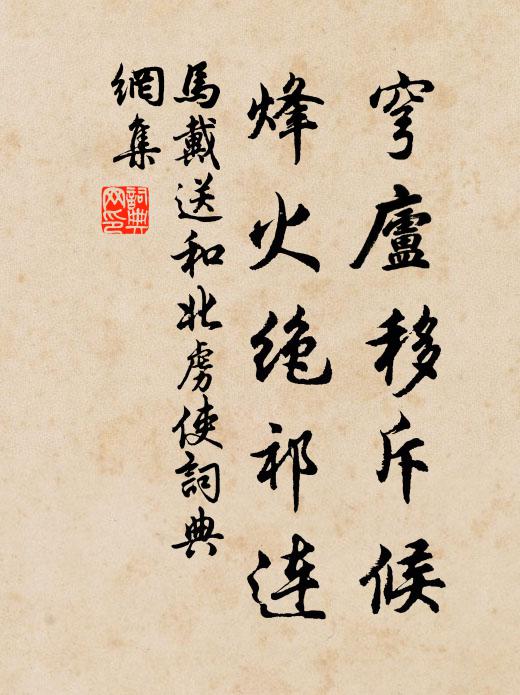 穹廬移斥候
烽火絶祁連
馬戴送和北虜使詞典
網集
詞典網印